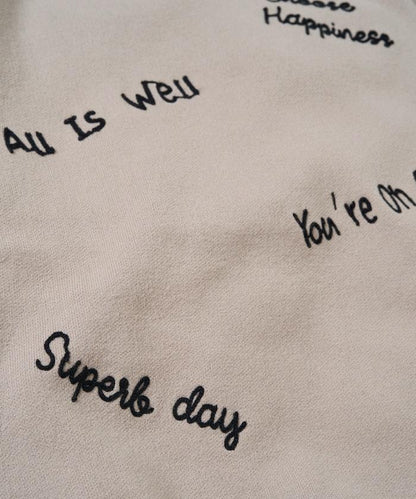 Choose
Happiness
All Is Well
You're on
Superb day